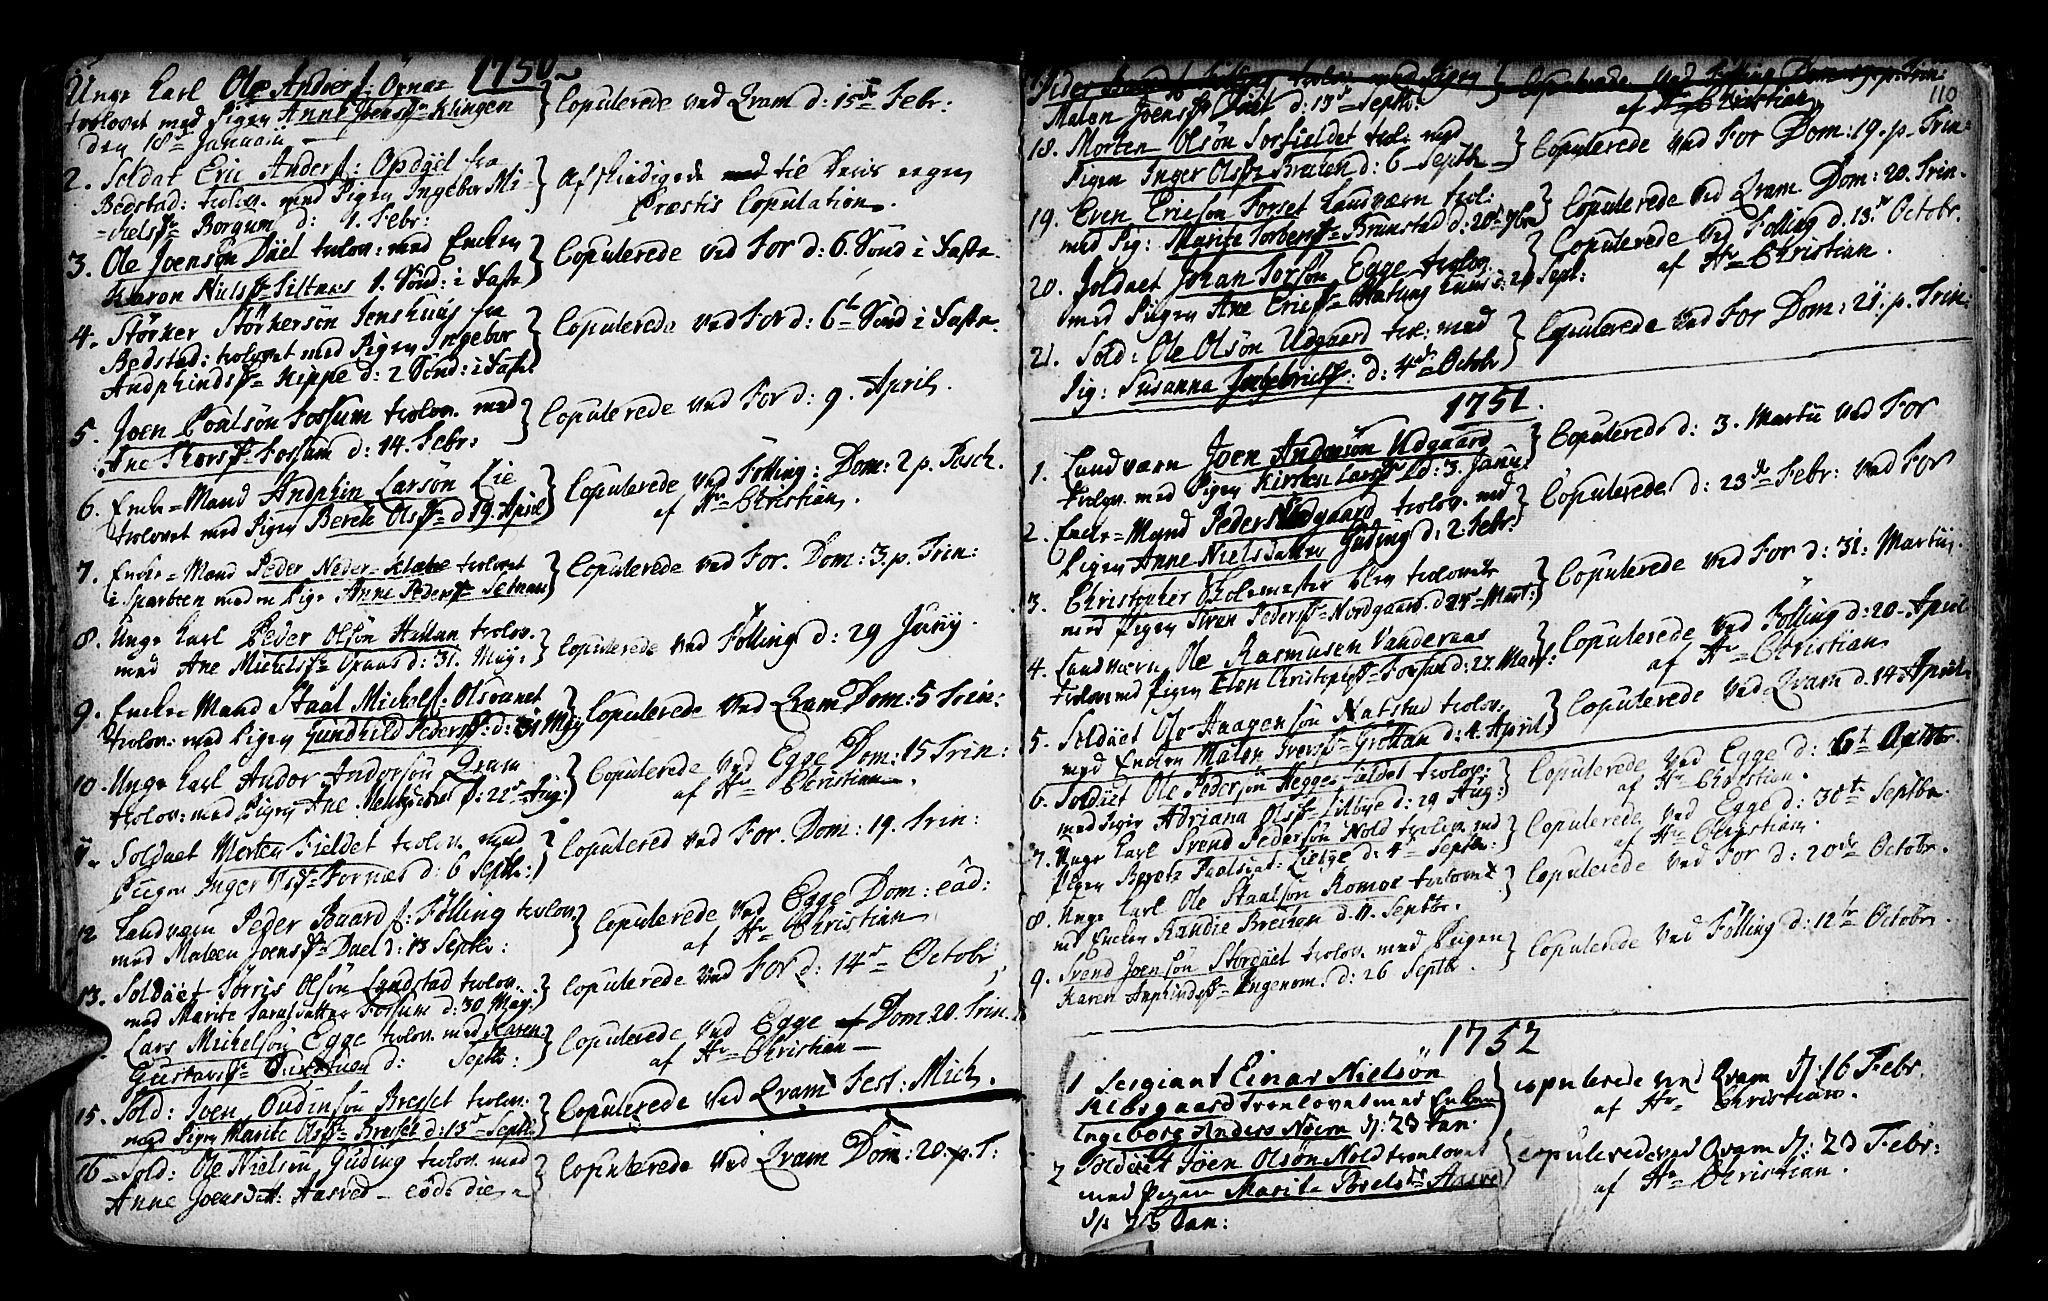 1750
Unge Karl Ole Anders: Öxnæs
trolovet med Pigen Anne Joens Klingen
den 18 Januarii
Copulerede ved Qvam d: 15de Febr:
2. Soldat Eric Anders: Opdöel fra
Bedstad: trolov. med Pigen Ingebor Mi-
-kels Borgum d: 1. Febr:
Afskiedigede til Deris egen
Præstis Copulation.
3. Ole Joensön Düel trolov: med Encken
Karen Niels 1. Sönd: i Faste
Copulerede ved For d: 6. Sönd i Faste.
4. Störker Störkersön fra
Bedstad: trolovet med Pigen Ingebor
Andphinds Kippe d: 2 Sönd: i Faste
Copulerede ved For d: 6te Sönd i Faste.
5. Joen Poulsön Fossum trolov. med
Ane Thors Fossum d: 14. Febr:
Copulerede ved For d: 9. April.
6. Encke-Mand Andphin Larsön Lie
trolovet med Pigen Berete Ols d 19. April
Copulerede ved Fölling: Dom: 2 p. Pasch.
af Hr Christian.
7. Encke-Mand Peder Neder-Klæbe trolovet
i Sparboen med en Pige Anne Peders Selnæs
Copulerede ved For. Dom: 3. p. Trin:
8. Unge Karl Peder Olsön Hallan trolov.
med Ane Mickels Opaas d: 31. May.
Copulerede ved Fölling d: 29 Junij.
9. Encke Mand Staal Mickels: Olsvanet
trolov: med Pigen Gundhild Peders: d: 31 May
Copulerede ved Qvam Dom: 5 Trin:
10. Unge Karl Andor Andorsön Qvam
trolov: med Pigen Ane d: 22 Aug:
Copulerede ved Egge Dom: 15 Trin:
af Hr Christian.
Soldaet Morten Fieldet trolov. med
Piigen Inger Fornæs d: 6 Septbr:
Copulered ved For. Dom: 19. Trin:
12 Landværn Peder Baards: Fölling trolov.
med Maleen Joens Duel d: 13 Septbr:
Copulerede ved Egge Dom: eåd:
af Hr Christian
13. Soldaet Jörris Olsön Landstad trolov.
med Marite Larsdatter Fossum d: 30 May.
Copulerede ved For d: 14 Octobr
Lars Mickelsön Egge trolov. med Karen
Gustavs d: Septbr:
Copulerede ved Egge Dom 20. Trin.
af Hr Christian
15. Sold: Joen Oudinsön Bresset trolov:
med Pigen Marite Ols Bresset d: 13 Septbr
Copulerede ved Qvam Fest: Mich.
16 Sold: Ole Nielsön Guding trolov. med
Anne Joensdatt: Aasved eod: die
Copulerede ved Qvam Dom: 20. p. T:
110
Peder Fölling trolov. med Pigen
Malen Joens Düel d: 13 Septbr:
Copulerede ved Fölling Dom: 19. p. Trin:
af Hr Christian
18. Morten Olsön Forfieldet trol: med
Pigen Inger Ols Braten d: 6 Septbr
Copulerede ved For Dom: 19. p. Trin:
19. Even Ericsön Forset Landværn trol:
med Pig: Marite Torbers Brunstad d: 20 7br
Copulerede ved Qvam. Dom: 20. Trin.
20. Soldaet Johan Egge trolov
med Pigen Ane Erics d: 29 Sept:
Copulerede ved Fölling d. 13 Octobr.
af Hr Christian.
21. Sold: Ole Olsön Udgaard trol: med
Pig: Susanna Ingebrics: d: 4de Octobr
Copulerede ved For Dom: 21. p. Trin:
1751.
1. Landværn Joen Andersön Udgaard
trolov. med Pigen Kirsten Lars d: 3. Janu:
Copulerede d: 3. Martii ved For
2. Encke-Mand Peder Nordgaard trolov. med
Pigen Anne Nielsdatter Guding d: 2 Febr:
Copulerede d: 23de Febr: ved For
3. Christopher Skolemester blev trolovet
med Pigen Siren Peders Nordgaard. d 24 Mart:
Copulerede ved For d: 31: Martii.
4. Landværn Ole Rasmusen Vanderaas
trolov med Pigen Elen Christophs Fossum d: 22. Mart:
Copulerede ved Fölling d: 20. April
af Hr Christian
5. Soldaet Ole Haagensön Natstad trolov.
med Encken Malen Ivers Grottan d: 4. April
Copulerede ved Qvam d. 14 April.
6. Soldaet Ole Pedersön Heggesfieldet trolov.
med Pigen Adriana Ols Lilbye d: 29 Aug:
Copulerede ved Egge d: 6te Octobr.
af Hr Christian.
7. Unge Karl Svend Pedersön Nold trolov. med
Pigen Berete Paulsdat: Lielbye d: 4 Septbr:
Copulerede ved Egge d: 30te Septbr.
af Hr Christian.
8. Unge Karl Ole Staalsön Romoe trolovet
med Encken Randie Breeken d. 11. Septbr.
Copulerede ved For d: 20de Octobr.
9. Svend Joensön Stordöel trolov. med Piigen
Karen Anphinds d: 26 Septbr.
Copulerede ved Fölling d: 12te Octobr.
1752
1 Sergiant Einar Nielsön
Kibsgaard troelovet med Enken
Ingeborg Anders Nöem d: 23 Jan.
copulerede ved Qvam d: 16 Febr.
af Hr Christian.
2 Soldaet Jöen Olsön Nold troelovet
med Pigen Marite
d: 23 Jan:
copulerede ved Qvam d: 23 Febr:
af Hr Christian.